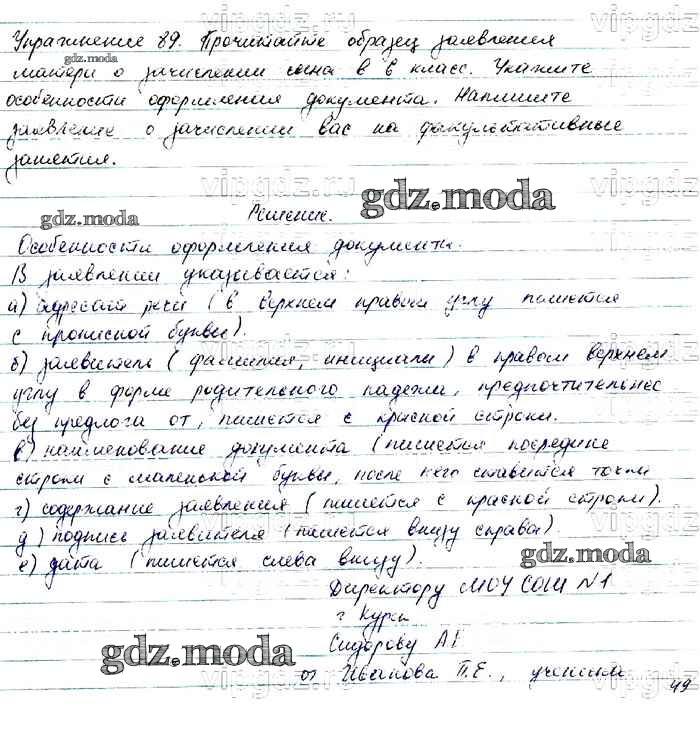 Упражнение 89. Прочитайте образец заявления
матери о зачислении сына в 6 класс. Укажите
особенности оформления документа. Напишите
заявление о зачислении вас на факультативные
занятия.
Решение.
Особенности оформления документа.
В заявлении указывается:
а) адресат речи (в верхнем правом углу пишется
с прописной буквы).
б) заявитель (фамилия, инициалы) в правом верхнем
углу в форме родительного падежа, предпочтительнее
без предлога от, пишется с красной строки.
в) наименование документа (пишется посредине
строки с маленькой буквы, после него ставится точка
г) содержание заявления (пишется с красной строки).
д) подпись заявителя (пишется внизу справа).
е) дата (пишется слева внизу).
Директору МОУ СОШ №1
г Курск
Сидорову А Г
от Иванова П.Е., ученика
49
gdz.moda
gdz.moda
gdz.moda
gdz.moda
gdz.moda
vipgdz.ru